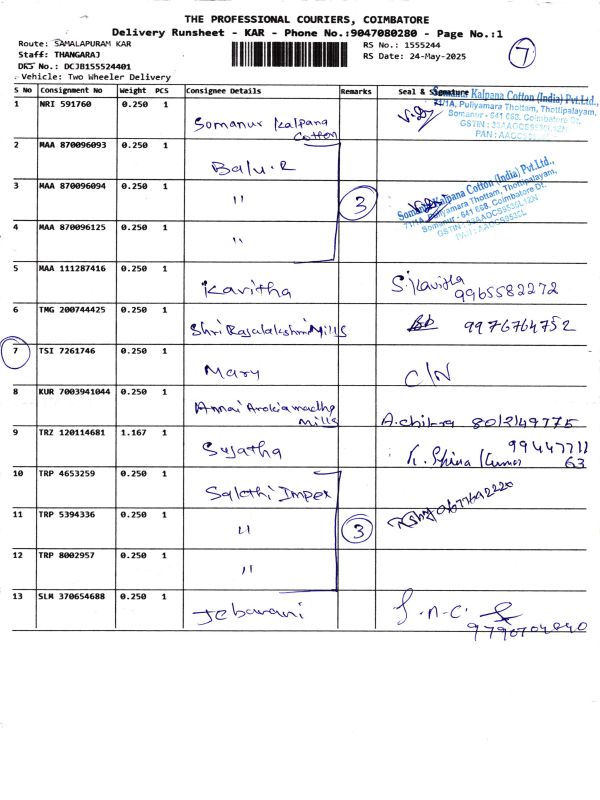 THE PROFESSIONAL COURIERS, COIMBATORE
Delivery Runsheet - KAR - Phone No.:9047080280 - Page No.:1
Route: SAMALAPURAM KAR
Staff: THANGARAJ
DRS No.: DCJB155524401
Vehicle: Two Wheeler Delivery
RS No.: 1555244
RS Date: 24-May-2025
7
S No Consignment No Weight PCS Consignee Details Remarks Seal & Signature
1 NRI 591760 0.250 1 Somanur Kalpana Cotton
Somanur Kalpana Cotton (India) Pvt.Ltd.,
71/1A, Puliyamara Thottam, Thottipalayam,
Somanur - 641 668. Coimbatore Dt.
2 MAA 870096093 0.250 1 Balu.R
3 MAA 870096094 0.250 1 " 3
Somanur Kalpana Cotton (India) Pvt.Ltd.,
71/1A, Puliyamara Thottam, Thottipalayam,
Somanur - 641 668. Coimbatore Dt.
4 MAA 870096125 0.250 1 "
5 MAA 111287416 0.250 1 Kavitha S. Kavitha 9965582272
6 TMG 200744425 0.250 1 Shri Rajalakshmi Mills 9976764752
7 TSI 7261746 0.250 1 Mary C/N
8 KUR 7003941044 0.250 1 Annai Arokiamadha Mills
9 TRZ 120114681 1.167 1 Sujatha K. Shiva Kumar 9944771163
10 TRP 4653259 0.250 1 Salethi Impex
11 TRP 5394336 0.250 1 " 3
12 TRP 8002957 0.250 1 "
13 SLM 370654688 0.250 1 Jebarani